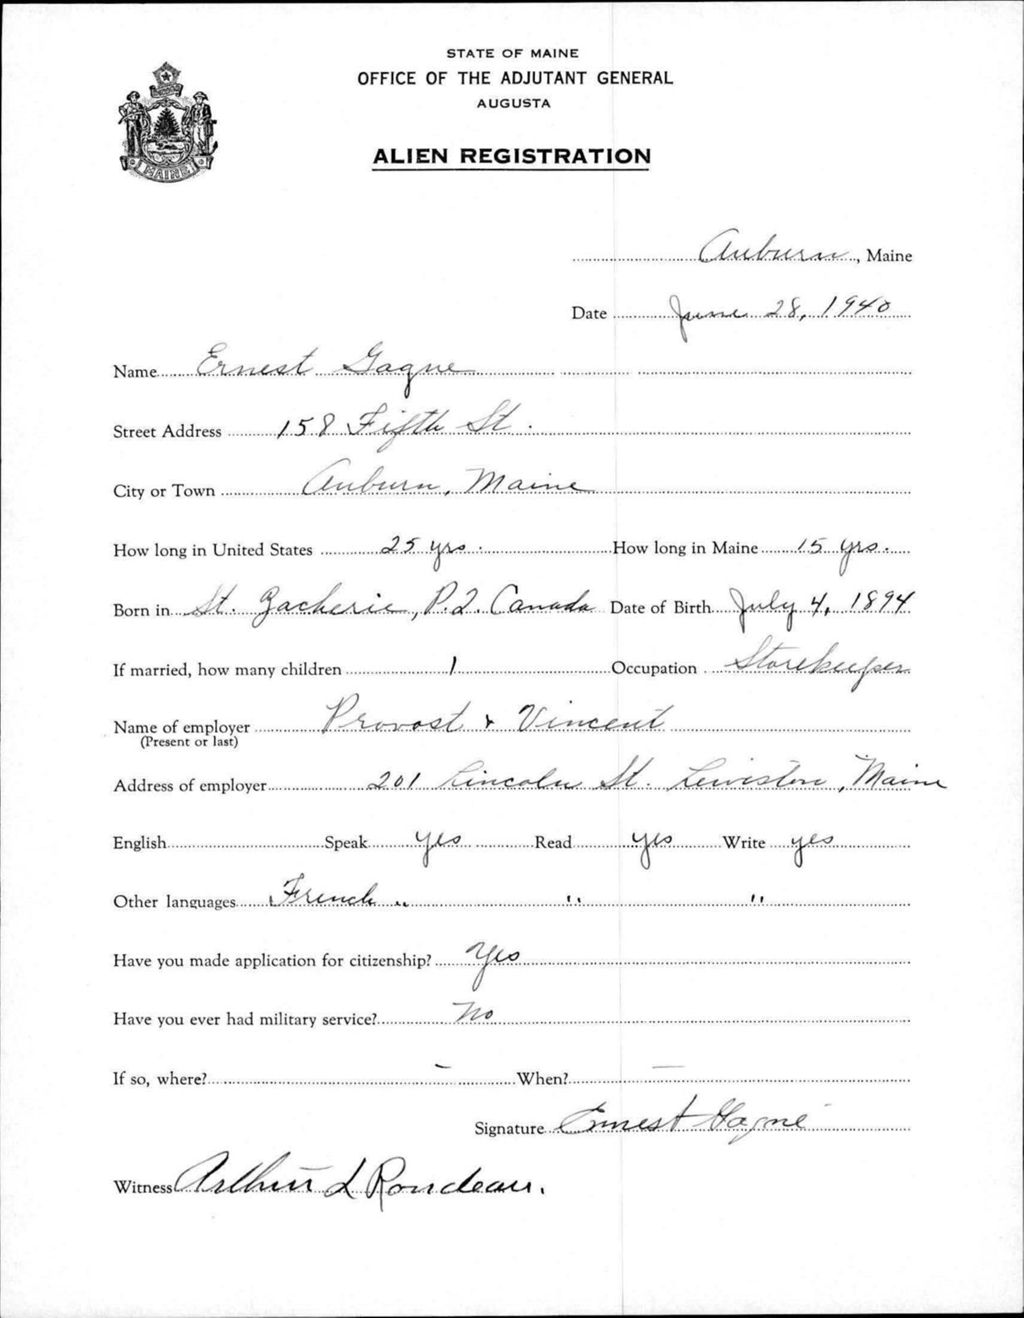 STATE OF MAINE
OFFICE OF THE ADJUTANT GENERAL
AUGUSTA
ALIEN REGISTRATION
MAINE
Auburn, Maine
Date June 28, 1940
Name Ernest Gagne
Street Address 158 Fifth St.
City or Town Auburn, Maine
How long in United States 25 yrs. How long in Maine 15 yrs.
Born in St. Zacherie, P.Q. Canada Date of Birth July 4, 1894
If married, how many children 1 Occupation Storekeeper
Name of employer Provost & Vincent
(Present or last)
Address of employer 201 Lincoln St. Lewiston, Maine
English Speak yes Read yes Write yes
Other languages French " " "
Have you made application for citizenship? Yes
Have you ever had military service? No
If so, where? - When? -
Signature Ernest Gagné
Witness Arthur L Rondeau.